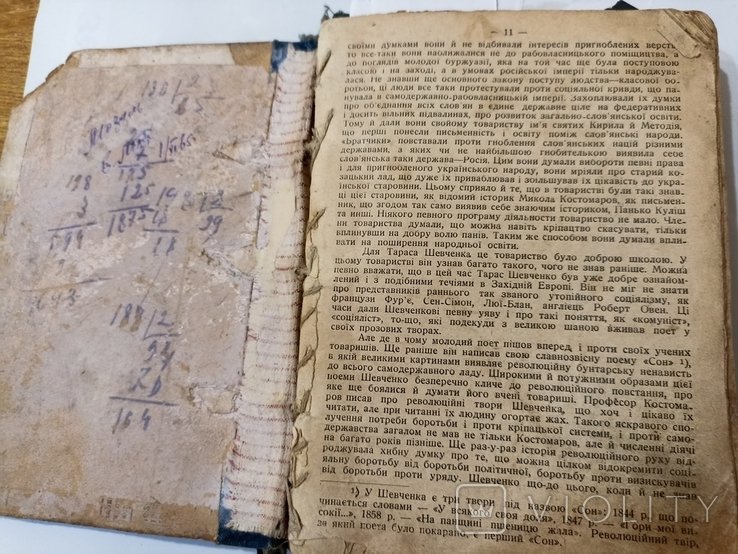 — 11 —
своїми думками вони й не відбивали інтересів пригноблених верств
то все-таки вони наближалися не до рабовласницького поміщицтва, а
до поглядів молодої буржуазії, яка на той час ще була поступовою
класою і на заході, а в умовах російської імперії тільки народжува-
лася. Не знавши ще основного закону поступу людства—класової бо-
ротьби, ці люди все таки протестували проти соціяльної кривди, що па-
нувала в самодержавно-рабовласницькій імперії. Захоплювали їх думки
про об'єднання всіх слов'ян в єдине державне ціле на федеративних
і досить вільних підвалинах, про розвиток загально-слов'янської освіти.
Тому й дали вони своєму товариству ім'я святих Кирила й Методія,
що перші понесли письменність і освіту поміж слов'янські народи.
«Братчики» повставали проти гноблення слов'янських націй різними
державами, з яких чи не найбільшою гнобителькою виявила себе
слов'янська таки держава—Росія. Цим вони думали вибороти певні права
і для пригнобленого українського народу, вони мріяли про старий ко-
зацький лад, що дуже їх приваблював і збільшував їх цікавість до укра-
їнської старовини. Цьому сприяло й те, що в товаристві були такі знав-
ці цієї старовини, як відомий історик Микола Костомаров, як письмен-
ник, що згодом так само виявив себе знаючим істориком, Панько Куліш
та инші. Ніякого певного програму діяльности товариство не мало. Чле-
ни товариства думали, що можна навіть кріпацтво скасувати, тільки
вплинувши на добру волю панів. Таким же способом вони думали впли-
вати на поширення народньої освіти.
Для Тараса Шевченка це товариство було доброю школою. У
цьому товаристві він узнав багато такого, чого не знав раніше. Можна
певно вважати, що в цей час Тарас Шевченко був уже добре ознайом-
лений і з подібними течіями в Західній Европі. Він не міг не знати
про представників раннього так званого утопійного соціялізму, як
французи Фур'є, Сен-Сімон, Люї-Блан, англієць Роберт Овен. Ці
часи дали Шевченкові певну уяву і про такі поняття, як «комуніст»,
«соціяліст», то-що, які подекуди з великою шаною вживав поет у
своїх прозових творах.
Але де в чому молодий поет пішов вперед і проти своїх учених
товаришів. Ще раніше він написав свою славнозвісну поему «Сон» ¹),
в якій великими картинами виявляє революційну бунтарську ненависть
до всього самодержавного ладу. Широкими й потужними образами цієї
поеми Шевченко безперечно кличе до революційного повстання, про
яке ще боялися й думати його вчені товариші. Професор Костома-
ров писав про революційні твори Шевченка, що хоч і цікаво їх
читати, але при читанні їх людину огортає жах. Такого яскравого спо-
лучення потреби боротьби і проти кріпацької системи, і проти само-
державства загалом не мав не тільки Костомаров, але й численні діячі
на багато років пізніше. Ще раз-у-раз історія революційного руху від-
роджувала хибну думку про те, що можна цілком відокремити соці-
яльну боротьбу від боротьби політичної, боротьбу проти визискувачів
від боротьби проти уряду. Шевченко що-до цього, коли й не став
¹) У Шевченка є три твори під назвою «Сон»: 1844 р. що по-
чинається словами — «У всякого своя доля», 1847 р. — «Гори мої ви-
сокії...», 1858 р. — «На панщині пшеницю жала». Революційний твір,
за який поета було покарано, є перший «Сон».
VIOLITY